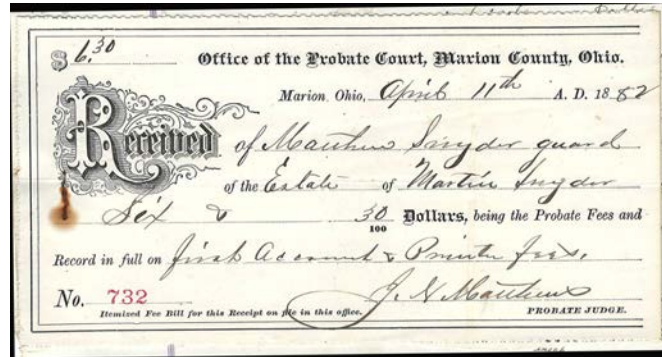 $ 6.30 Office of the Probate Court, Marion County, Ohio.
Marion, Ohio, April 11th A. D. 1882
Received of Matthew Snyder guard
of the Estate of Martin Snyder
Six & 30/100 Dollars, being the Probate Fees and
Record in full on first Account & Printer fees.
No. 732 J. N. Matthews
Itemized Fee Bill for this Receipt on file in this office. PROBATE JUDGE.